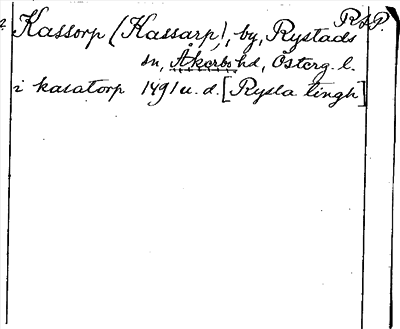 RAP.
2. Kassorp (Kassarp), by, Rystads
sn, Åkerbo hd, Österg. l.
i kasatorp 1491 u. d. [Rysla tingh]